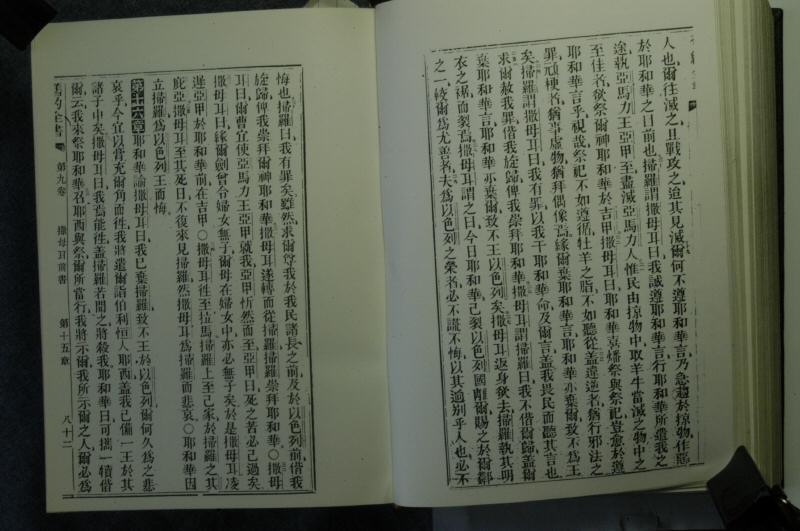 人也爾往滅之且戰攻之迨其見滅爾何不遵耶和華言乃急趨於掠物作惡
於耶和華之目前也掃羅謂撒母耳曰我誠遵耶和華言行耶和華所遣我之
途執亞馬力王亞甲至盡滅亞馬力人惟民由掠物中取羊牛當滅之物中之
至佳者欲祭爾神耶和華於吉甲撒母耳曰耶和華喜燔祭與祭祀豈愈於遵
耶和華言乎視哉祭祀不如遵循牡羊之脂不如聽從蓋違逆者猶行邪法之
罪頑梗者猶事虛物猶拜偶像焉緣爾棄耶和華言耶和華亦棄爾致不爲王
矣掃羅謂撒母耳曰我有罪以我干耶和華命及爾言蓋我畏民而聽其言也
求爾赦我罪偕我旋歸俾我崇拜耶和華撒母耳謂掃羅曰我不偕爾歸蓋爾
棄耶和華言耶和華亦棄爾致不王以色列矣撒母耳返身欲去掃羅執其明
衣之裾而裂焉撒母耳謂之曰今日耶和華已裂以色列國離爾賜之於爾鄰
之一較爾爲尤善者夫爲以色列之榮者必不謊不悔以其逈别乎人也必不
悔也掃羅曰我有罪矣雖然求爾尊我於我民諸長之前及於以色列前偕我
旋歸俾我崇拜爾神耶和華撒母耳遂轉而從掃羅掃羅崇拜耶和華○撒母
耳曰爾曹宜使亞馬力王亞甲就我亞甲忻然而至亞甲曰死之苦必已過矣
撒母耳曰緣爾劍曾令婦女無子爾母在婦女中亦必無子矣於是撒母耳凌
遲亞甲於耶和華前在吉甲○撒母耳往至拉馬掃羅上至己家於掃羅之其
庇亞撒母耳至其死日不復來見掃羅然撒母耳爲掃羅而悲哀○耶和華因
立掃羅爲以色列王而悔
第十六章耶和華諭撒母耳曰我已棄掃羅致不王於以色列爾何久爲之悲
哀乎今宜以膏充爾角而往我將遣爾詣伯利恒人耶西蓋我已備一王於其
諸子中矣撒母耳曰我焉能往蓋掃羅若聞之將殺我耶和華曰可攜一犢偕
爾云我來祭耶和華召耶西與祭爾所當行我將示爾我所示爾之人爾必爲
舊約全書 第九卷 撒母耳前書 第十五章 八十二